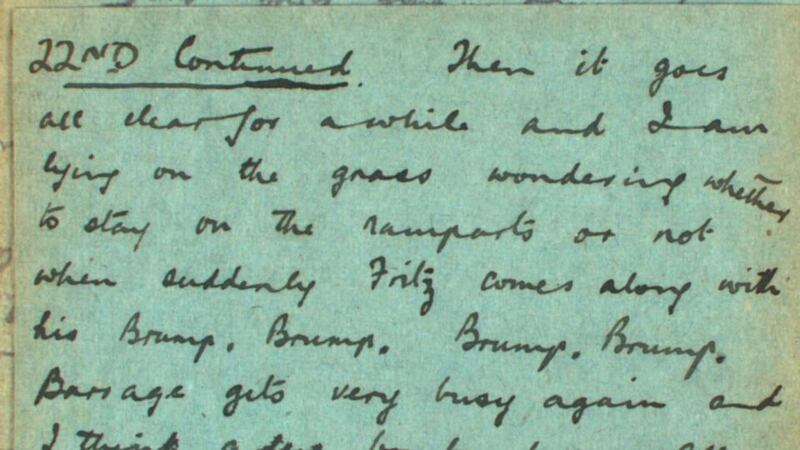 22ND Continued. Then it goes
all clear for awhile and I am
lying on the grass wondering whether
to stay on the ramparts or not
when suddenly Fritz comes along with
his Brump, Brump, Brump, Brump.
Barrage gets very busy again and
I think